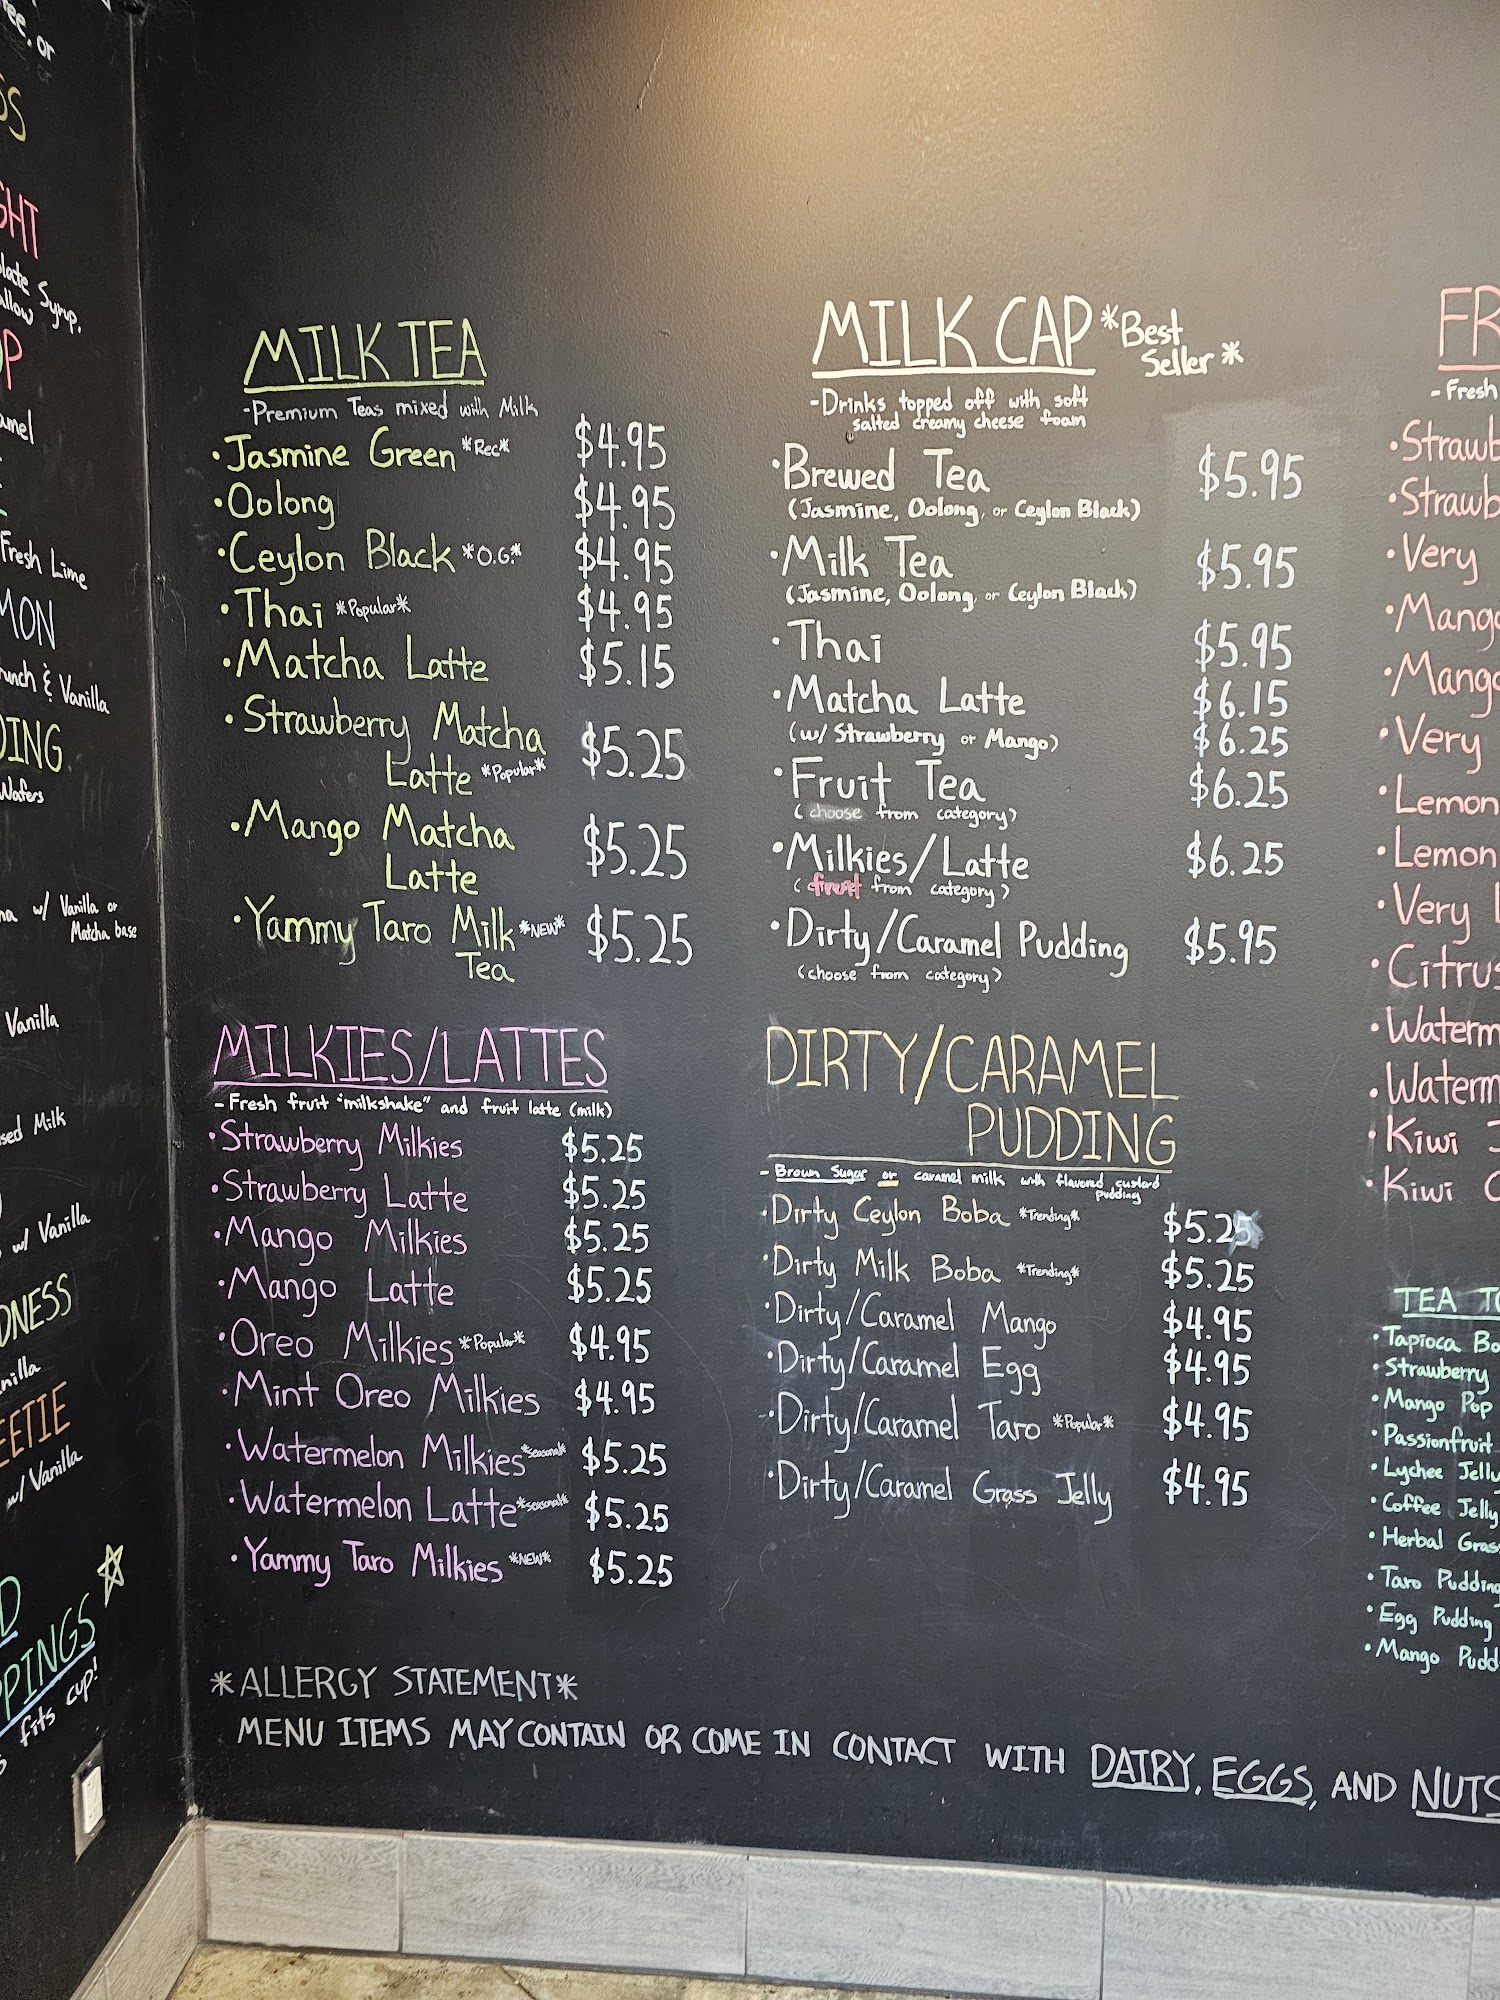 Syrup.
Fresh Lime
& Vanilla
Wafers
w/ Vanilla or
Matcha base
Vanilla
Milk
w/ Vanilla
w/ Vanilla
fits cup!
MILK TEA
-Premium Teas mixed with Milk
·Jasmine Green *Rec* $4.95
·Oolong $4.95
·Ceylon Black *O.G.* $4.95
·Thai *Popular* $4.95
·Matcha Latte $5.15
·Strawberry Matcha
Latte *Popular* $5.25
·Mango Matcha
Latte $5.25
·Yammy Taro Milk *NEW* $5.25
Tea
MILKIES/LATTES
-Fresh fruit "milkshake" and fruit latte (milk)
·Strawberry Milkies $5.25
·Strawberry Latte $5.25
·Mango Milkies $5.25
·Mango Latte $5.25
·Oreo Milkies *Popular* $4.95
·Mint Oreo Milkies $4.95
·Watermelon Milkies *seasonal* $5.25
·Watermelon Latte *seasonal* $5.25
·Yammy Taro Milkies *NEW* $5.25
MILK CAP *Best
Seller*
-Drinks topped off with soft
salted creamy cheese foam
·Brewed Tea $5.95
(Jasmine, Oolong, or Ceylon Black)
·Milk Tea $5.95
(Jasmine, Oolong, or Ceylon Black)
·Thai $5.95
·Matcha Latte $6.15
(w/ Strawberry or Mango) $6.25
·Fruit Tea $6.25
(choose from category)
·Milkies/Latte $6.25
( from category)
·Dirty/Caramel Pudding $5.95
(choose from category)
DIRTY/CARAMEL
PUDDING
-Brown Sugar or caramel milk with flavored custard
pudding
·Dirty Ceylon Boba *Trending* $5.25
·Dirty Milk Boba *Trending* $5.25
·Dirty/Caramel Mango $4.95
·Dirty/Caramel Egg $4.95
·Dirty/Caramel Taro *Popular* $4.95
·Dirty/Caramel Grass Jelly $4.95
-Fresh
·Very
·Very
·Lemon
·Lemon
·Very
·Kiwi
·Kiwi
TEA
·Tapioca
·Strawberry
·Mango Pop
·Passionfruit
·Lychee Jelly
·Coffee Jelly
·Herbal
·Taro Pudding
·Egg Pudding
·Mango
*ALLERGY STATEMENT*
MENU ITEMS MAY CONTAIN OR COME IN CONTACT WITH DAIRY, EGGS, AND NUTS